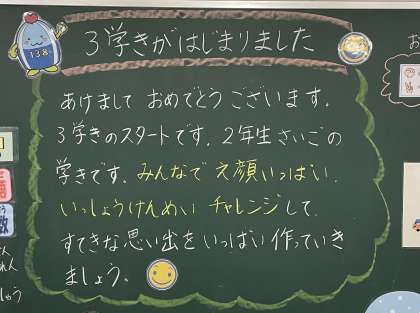 3学きがはじまりました
138
あけまして おめでとう ございます.
3学きのスタートです. 2年生さいごの
学きです. みんなで え顔いっぱい.
いっしょうけんめい チャレンジして.
すてきな思い出をいっぱい作っていき
ましょう。
お